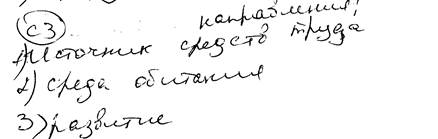 С3 направления;
1) Источник средств труда
2) среда обитания
3) развитие